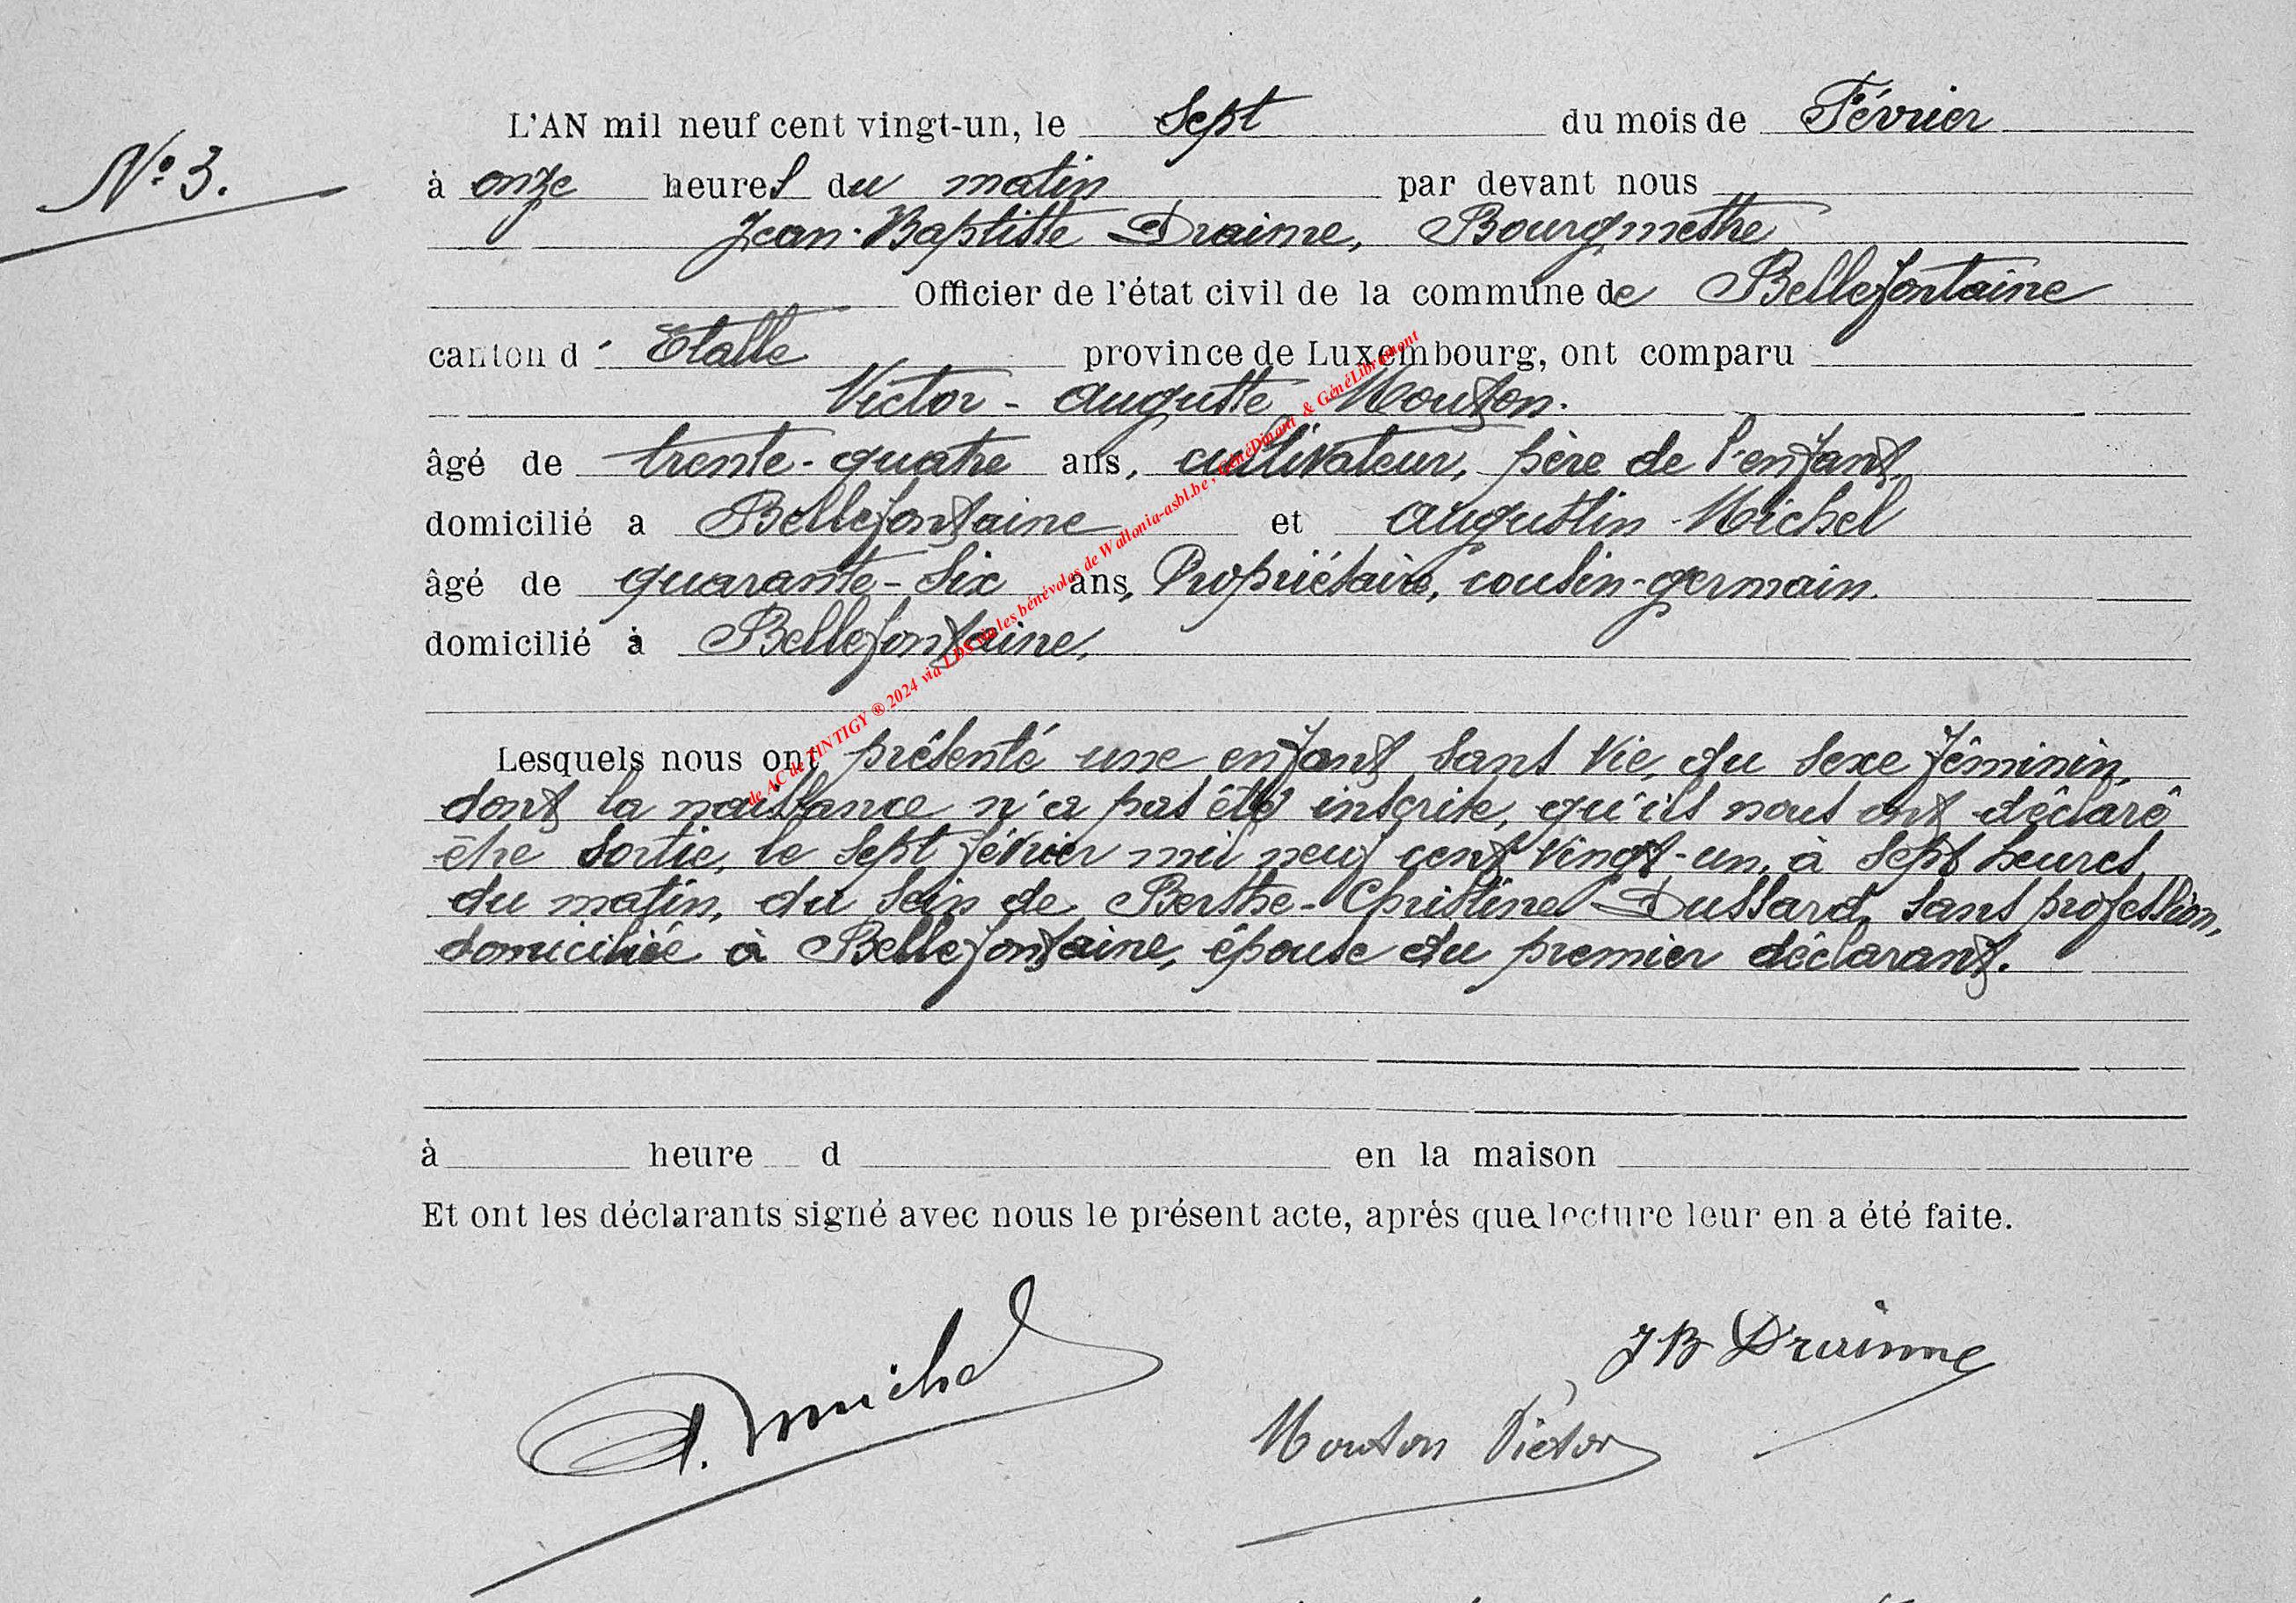 L'AN mil neuf cent vingt-un, le Sept du mois de Février
N° 3.
à onze heures du matin par devant nous
Jean-Baptiste Draime, Bourgmestre
Officier de l'état civil de la commune de Bellefontaine
canton d' Etalle province de Luxembourg, ont comparu
Victor-Auguste Mouton.
âgé de trente-quatre ans, cultivateur, père de l'enfant,
domicilié à Bellefontaine et Augustin Michel
âgé de quarante-six ans, Propriétaire, cousin-germain.
domicilié à Bellefontaine,
Lesquels nous ont présenté une enfant sans vie, du sexe féminin,
dont la naissance n'a pas été inscrite, qu'ils nous ont déclaré
être sortie, le sept février mil neuf cent vingt-un, à sept heures
du matin, du sein de Berthe-Christine Dussard, sans profession,
domiciliée à Bellefontaine, épouse du premier déclarant.
à heure d en la maison
Et ont les déclarants signé avec nous le présent acte, après que lecture leur en a été faite.
JB Drainne
A. Michel
Mouton Victor
de AC de TINTIGY ® 2024 via LDS via les bénévoles de Wallonia-asbl.be, GénéDinant & GénéLibramont